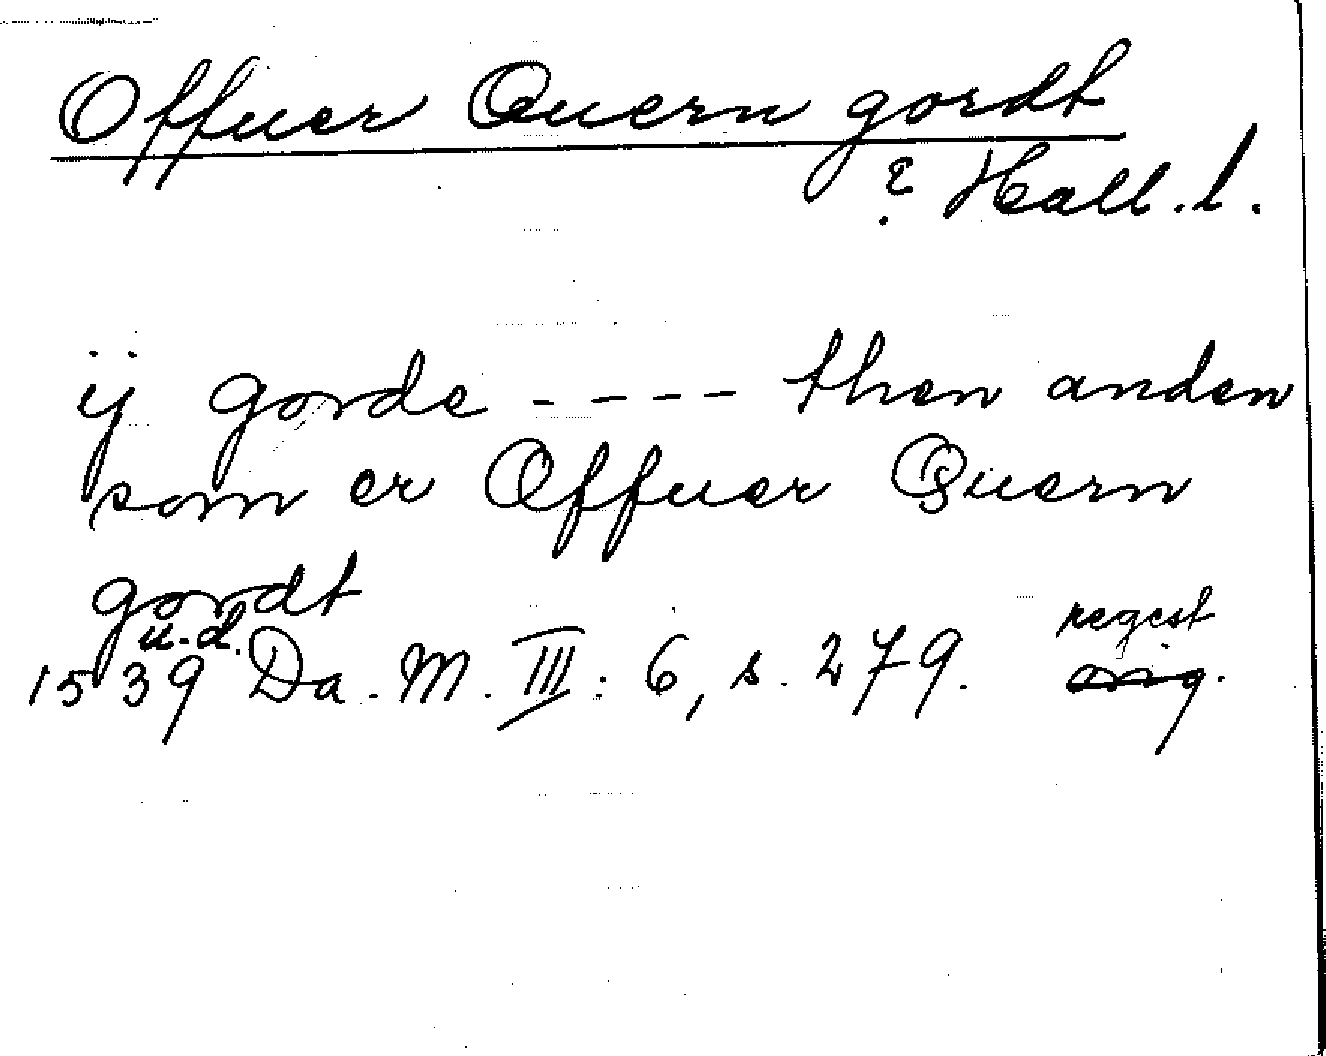 Offuer Quern gordt
? Hall. l.
ij gorde - - - - then anden
som er Offuer Quern
gordt
u. d.
1539 Da. M. III : 6, s. 279. regest
orig.